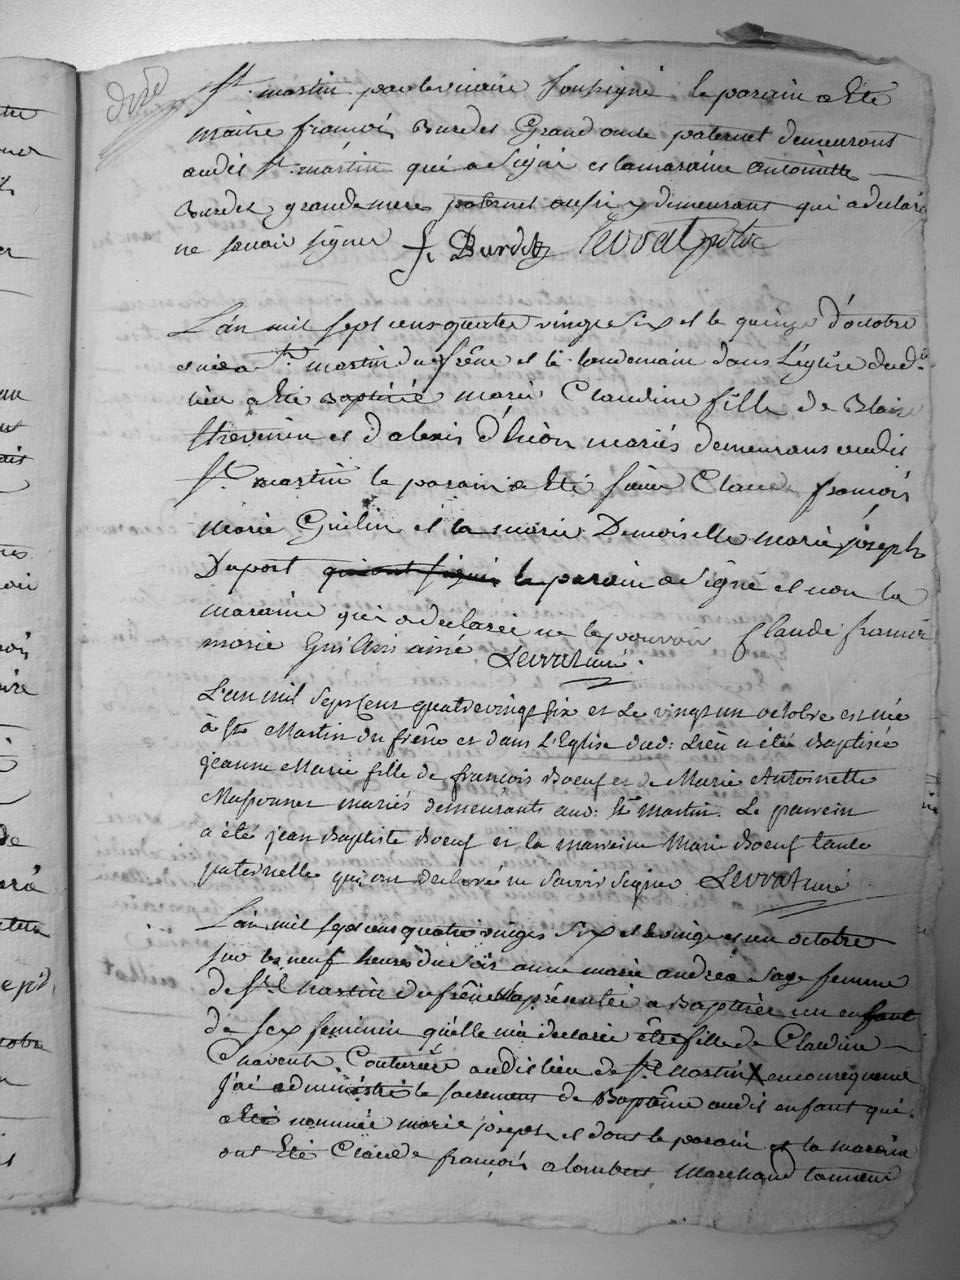 St. martin par le vicaire soussigné le parain a Eté
maitre françois Burdet Grand oncle paternel demeurant
audit St. martin qui a signé et la maraine antoinette
Burdet grande mere paternel aussi y demeurant qui a declaré
ne savoir signer f. Burdet
L'an mil sept cens quatre vingt six et le quinze d'octobre
est née a St. martin du frêne et le landemain dans L'église dud.
lieu a Eté Baptisée marie Claudine fille de Blaise
thevenin et d'alexis mariés demeurans audit
St. martin le parain a Eté sieur Claude françois
marie Guilin et la Demoiselle marie joseph
Duport qui ont signé le parain a signé et non la
maraine qui a declarée ne le pouvoir Claude francois
marie ainé Levrat curé.
L'an mil sept cens quatre vingt six et Le vingt un octobre est née
à St. Martin du frêne et dans L'Eglise dud: Lieu a été Baptisée
jeanne Marie fille de françois Boeuf et de Marie Antoinette
mariés demeurants aud: St. martin. Le parrein
a été jean Baptiste Boeuf et la marreine Marie Boeuf tante
paternelle qui ont declaré ne savoir signer Levrat curé
L'an mil sept cens quatre vingts six et le vingt et un octobre
sur les neuf heures du soir anne marie andréa sage femme
de St. Martin du frêne m'a présentée a Baptiser un enfant
de sex feminin qu'elle m'a declaré être fille de Claudine
Couturière audit lieu de St. Martin X en conséquence
j'ai administré le sacrement de Baptême audit enfant qui
a Eté nommée marie joseph et dont le parain et la maraine
ont Eté Claude françois alombert Marchand tanneur